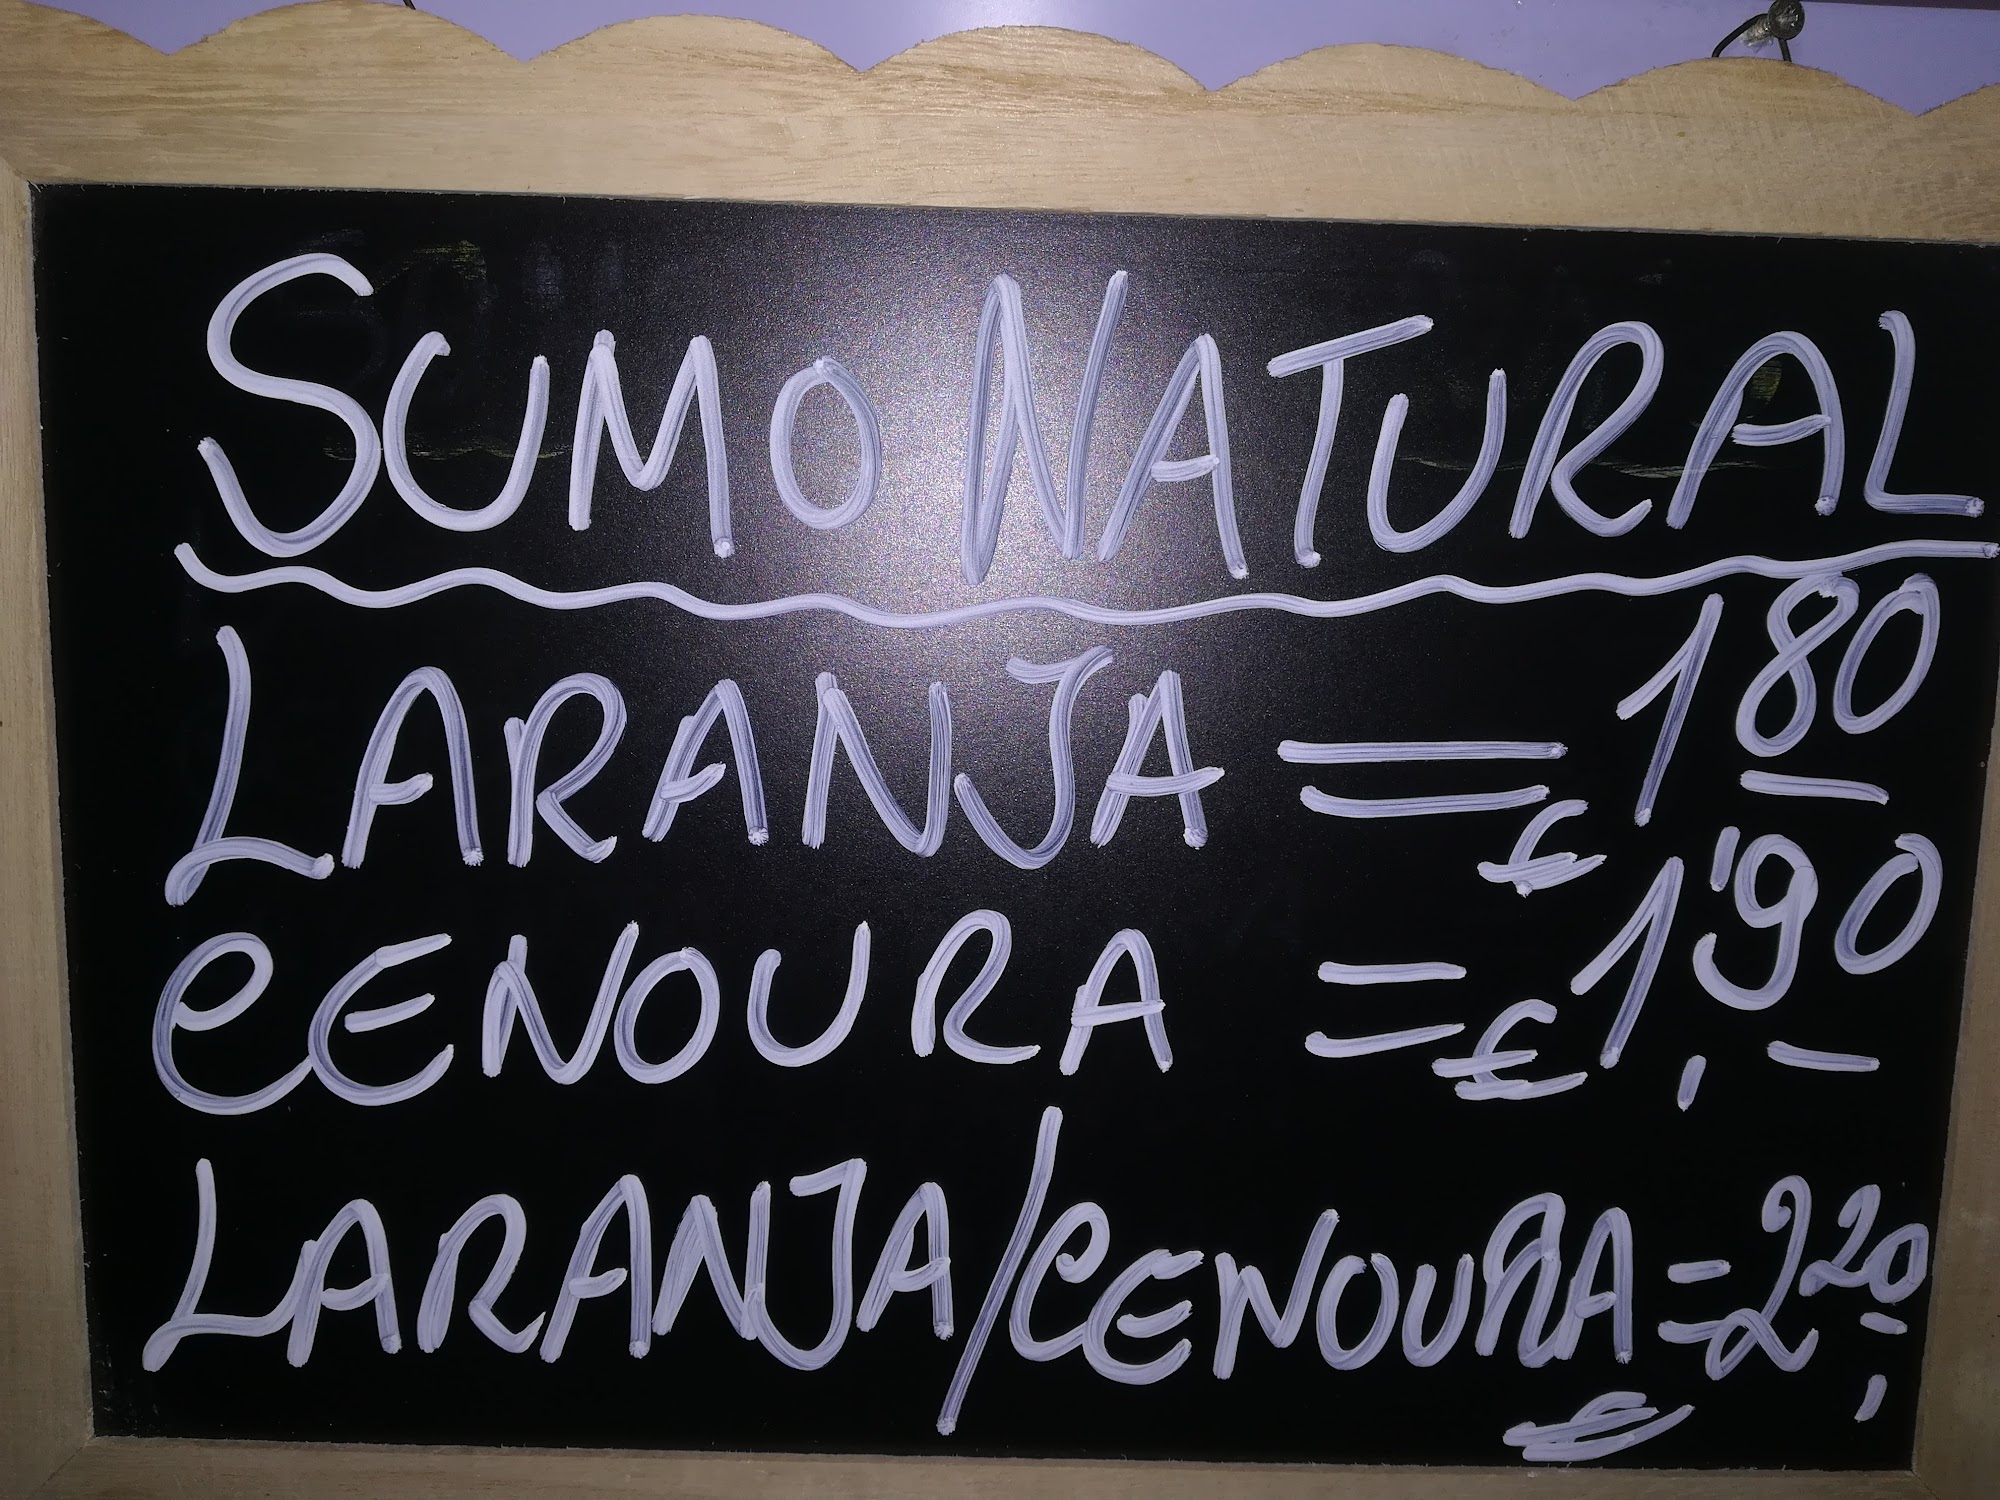 SUMO NATURAL
LARANJA = € 1,80
CENOURA = € 1,90
LARANJA/CENOURA = € 2,20